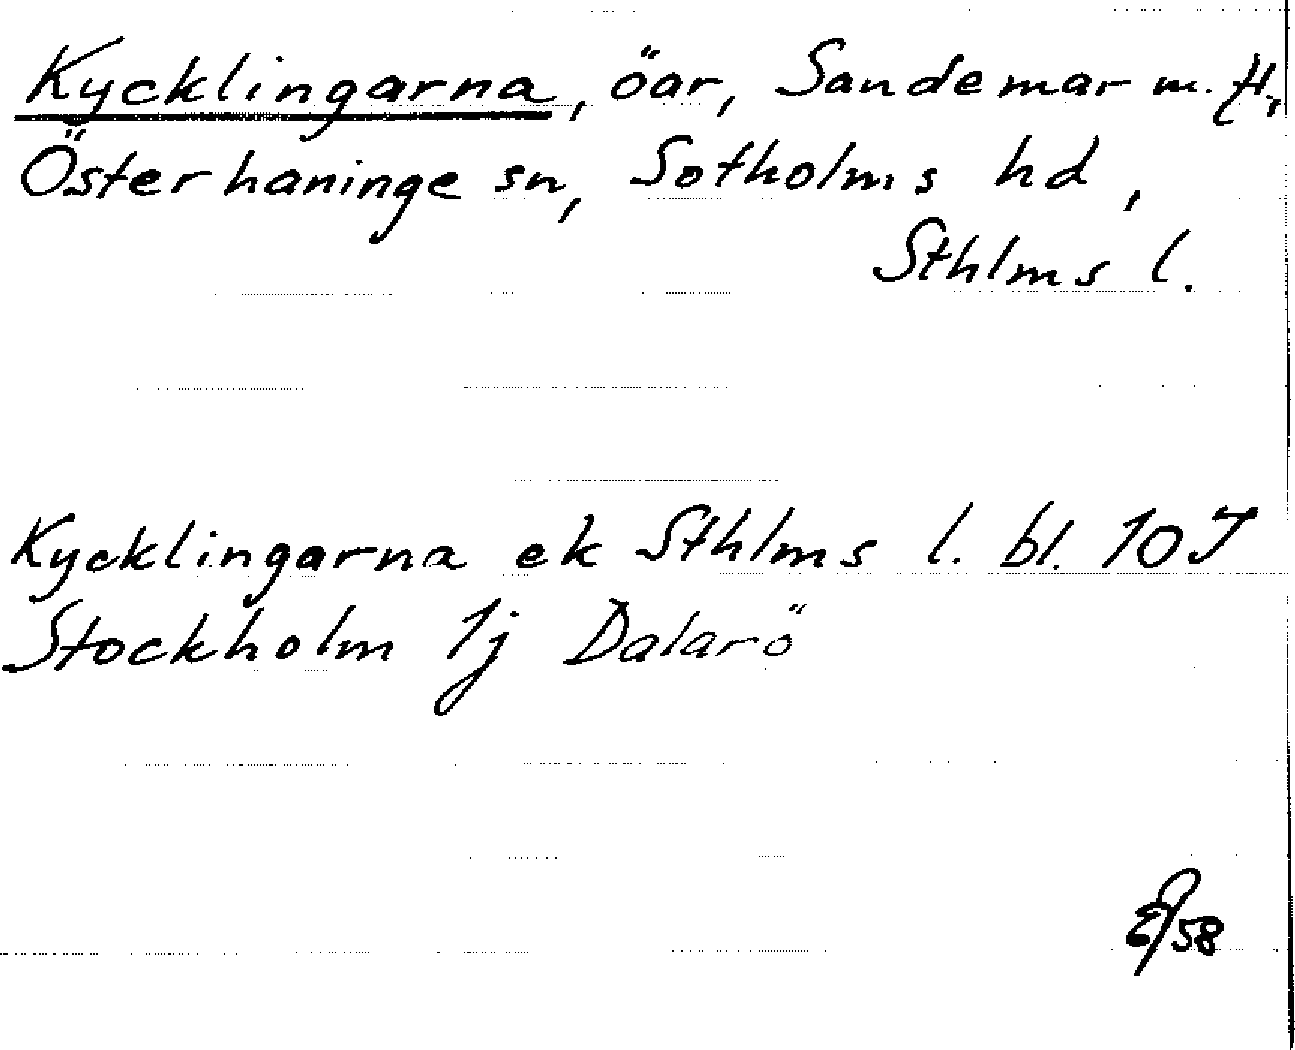 Kycklingarna, öar, Sandemar m. fl.,
Österhaninge sn, Sotholms hd,
Sthlms l.
Kycklingarna ek Sthlms l. bl. 10J
Stockholm 1j Dalarö
58